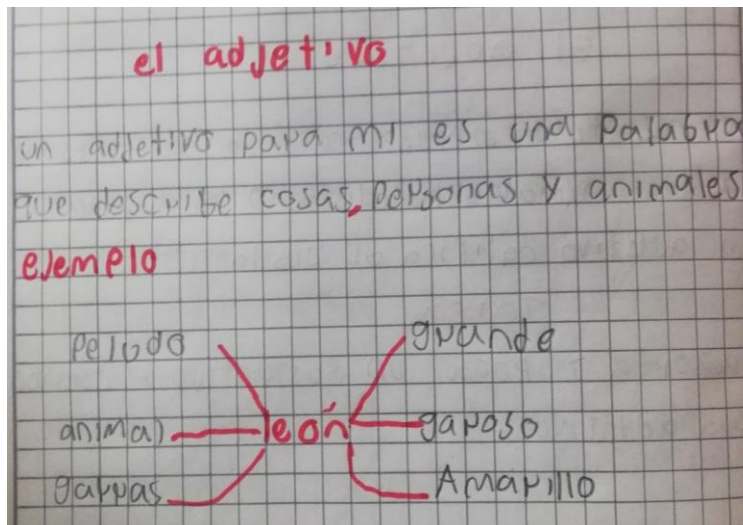 el adjetivo
un adjetivo para mi es una palabra
que describe cosas, personas y animales
ejemplo
peludo grande
animal león garoso
garras Amarillo